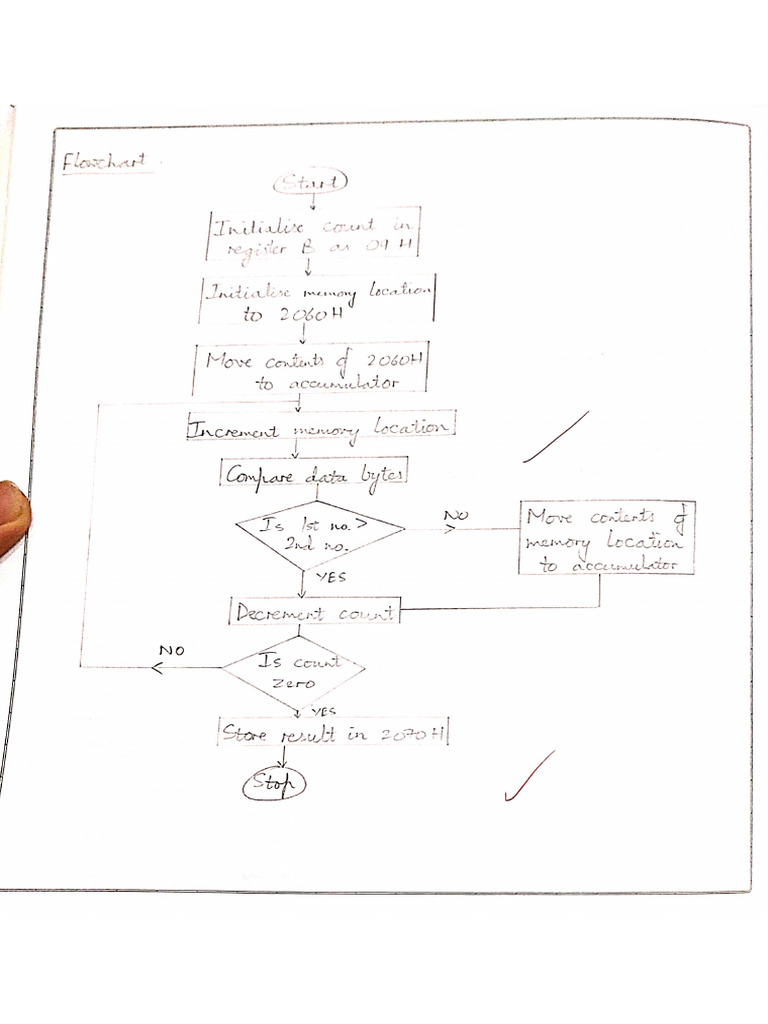 Flowchart.
Start
Initialise count in
register B as 09 H
Initialise memory location
to 2060H
Move contents of 2060H
to accumulator
Increment memory location
Compare data bytes
Is 1st no. >
2nd no.
NO
Move contents of
memory location
to accumulator
YES
Decrement count
Is count
zero
NO
YES
Store result in 2070H
Stop